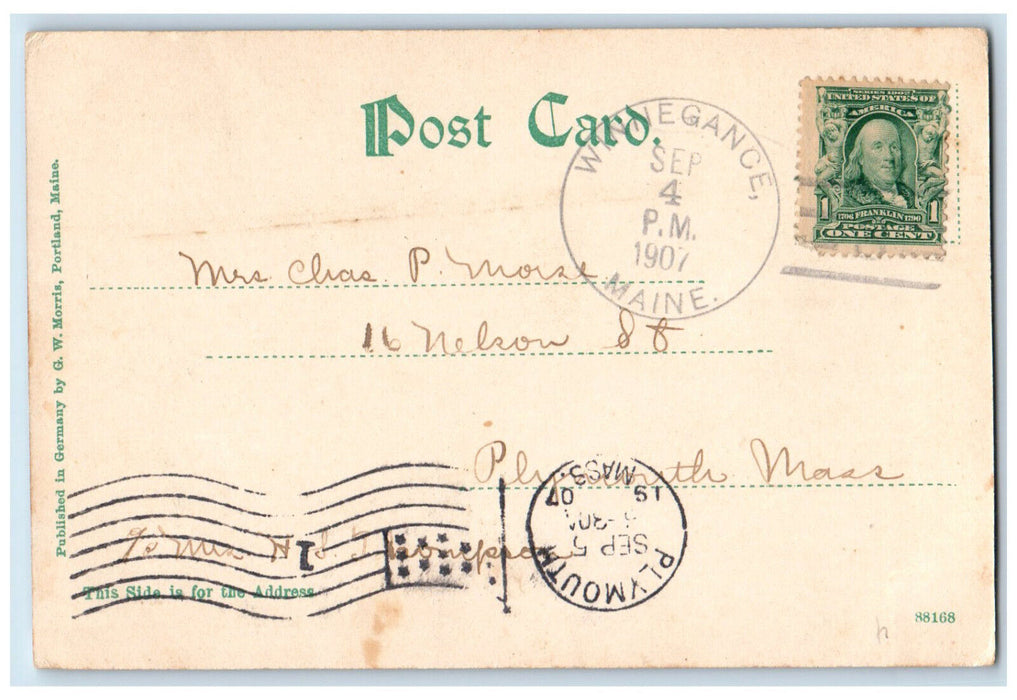 Post Card.
WINNEGANCE,
SEP
4
P.M.
1907
MAINE.
SERIES 1902
UNITED STATES OF
AMERICA
1 1706 FRANKLIN 1790 1
POSTAGE
ONE CENT
Published in Germany by G. W. Morris, Portland, Maine.
Mrs Chas. P. Morse
16 Nelson St
Plymouth Mass
c/o Mrs H. S. Thompson
1
PLYMOUTH
SEP 5
-30A
19 07
MASS.
This Side is for the Address.
88168